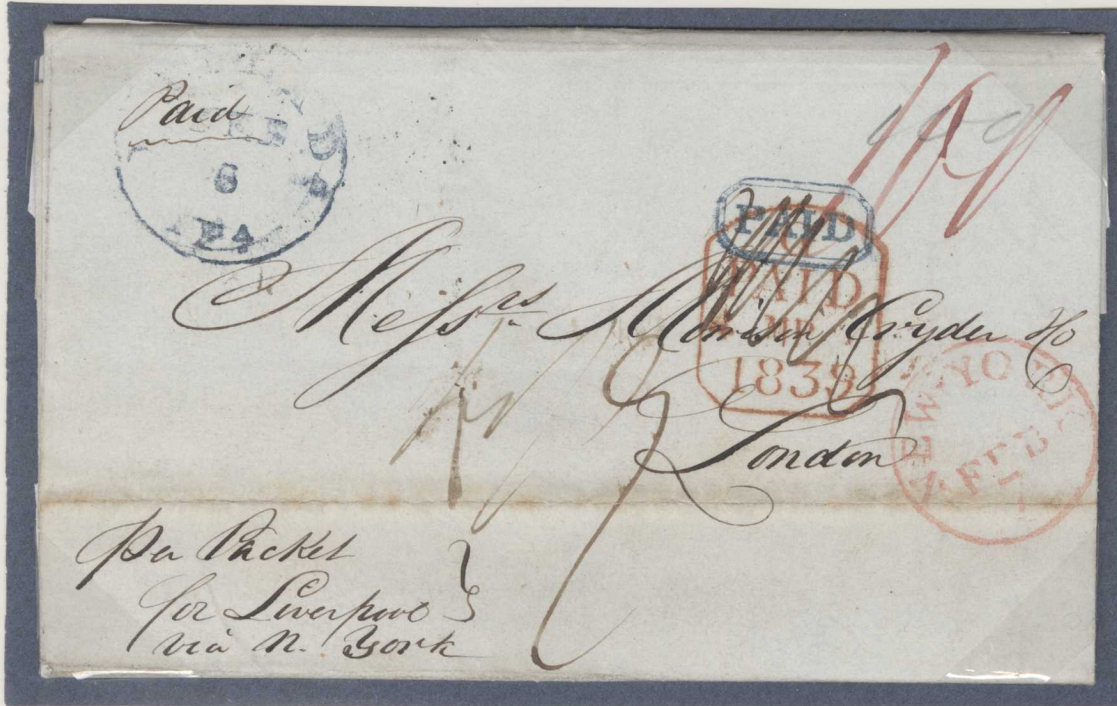 Paid
6
PA
PAID
PAID
MR
1839
Messrs Morrison Cryder & Co
London
NEW-YORK
FEB
per Packet
for Liverpool
via N. York